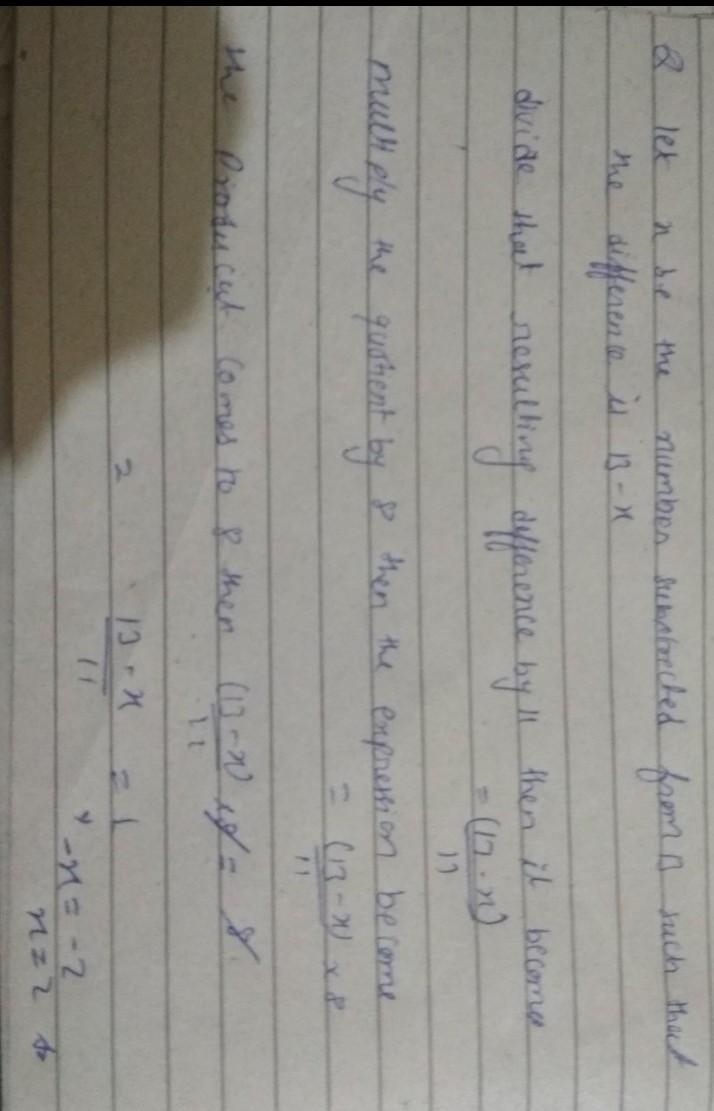 2 let x be the number substracted from 13 such that
the difference is 13 - x
divide that resulting difference by 11 then it become
= (13 - x)
11
multiply the quotient by 8 then the expression become
= (13 - x) x 8
11
the product comes to 8 then (13 - x) x 8 = 8
11
13 - x = 1
11
-x = -2
x = 2